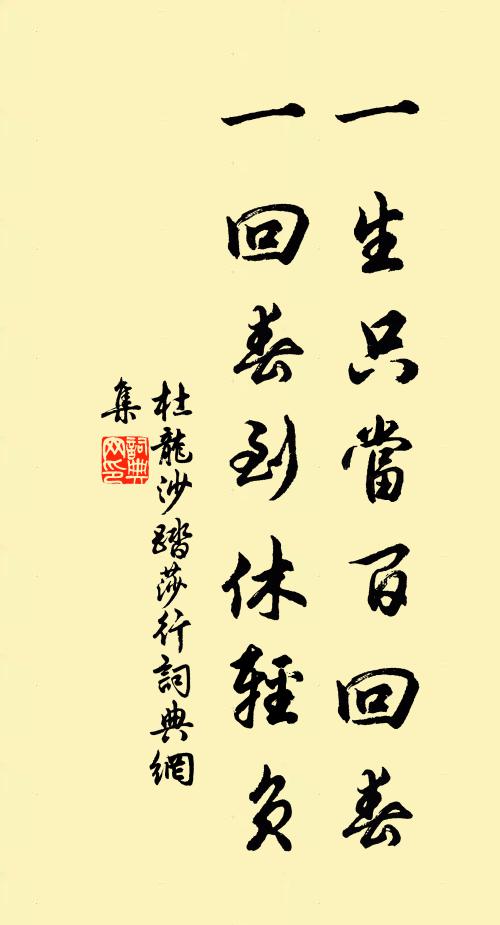 一生只當百回春
一回春到休輕負
杜龍沙踏莎行詞典網
集
詞典网印